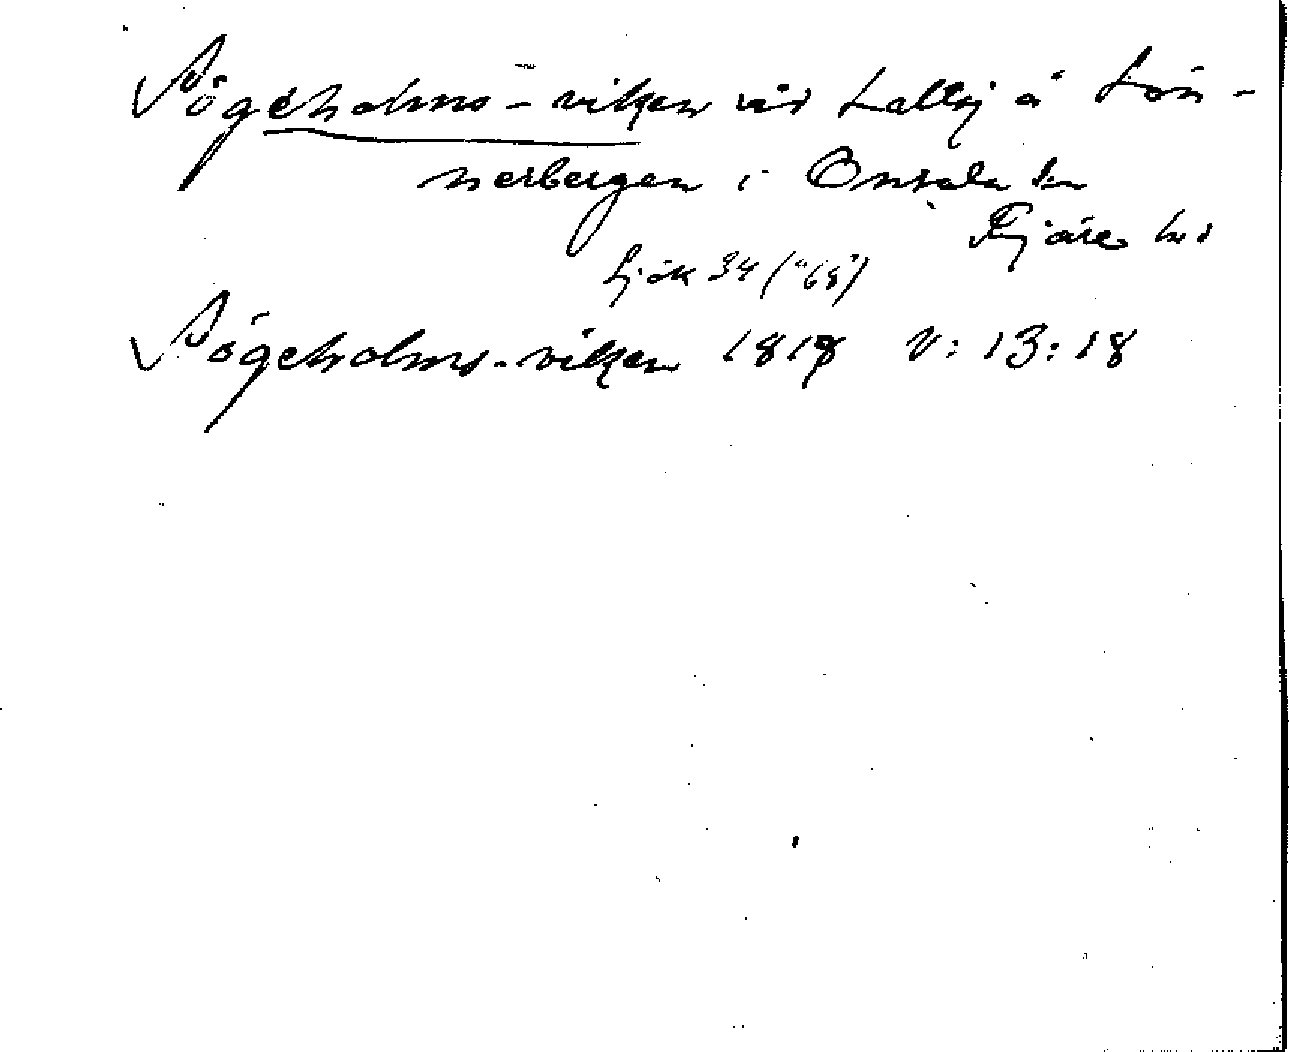 Pögeholms-viken vid Lallij å Lön-
nerbergen i Onsala sn
Fjäre hd
Sjök 34 ("68")
Pögeholms-viken 1818 V: 13: 18